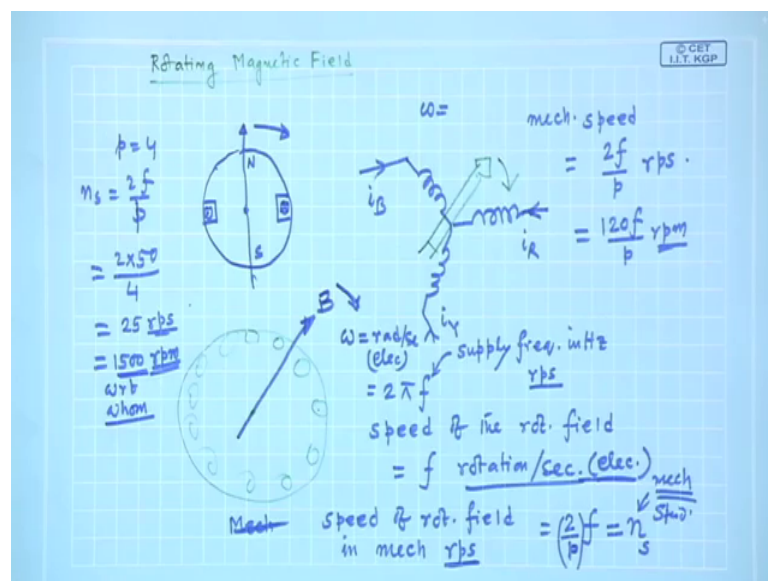 Rotating Magnetic Field
© CET
I.I.T. KGP
p=4
n_s = 2f/p
= 2×50/4
= 25 rps
= 1500 rpm
wrt
whom
N
S
B
ω=
i_B
i_R
i_Y
mech. speed
= 2f/p rps.
= 120f/p rpm
ω = rad/se
(elec)
= 2πf
supply freq. in Hz
rps
speed of the rot. field
= f rotation/sec. (elec.)
Mech
speed of rot. field
in mech rps
= (2/p)f = n_s
mech